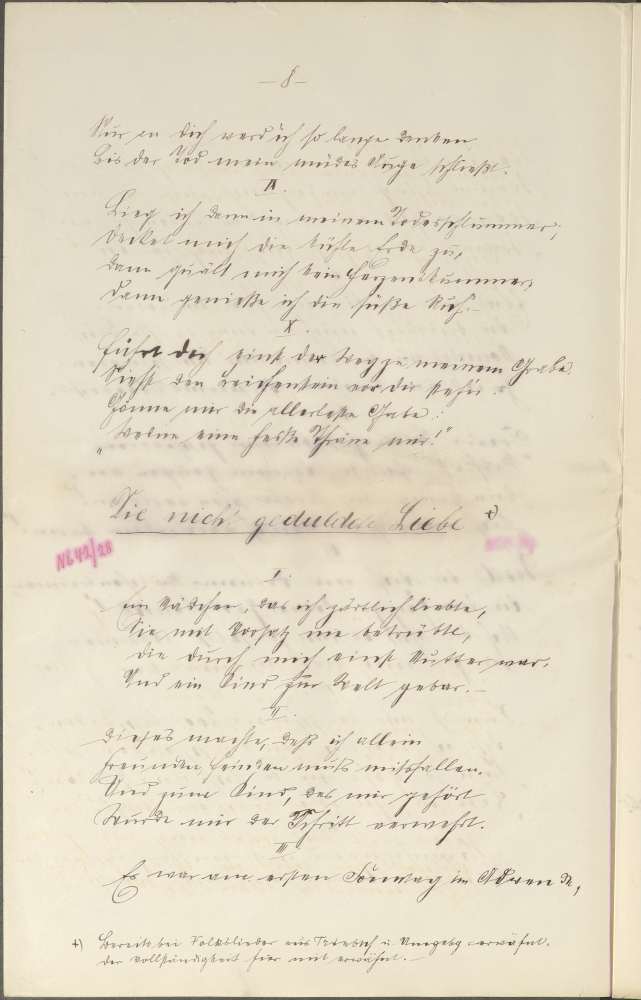 — 8 —
Nur an dich werd ich so lange denken
Bis der Tod mein müdes Auge schließt.
IX.
Lieg ich dann in meinem Todesschlummer,
Decket mich die kühle Erde zu,
Dann quält mich kein Herzenskummer,
Dann genieße ich die süße Ruh.
X.
Führt dich einst der Weg zu meinem Grabe
Siehst den Leichenstein vor dir steh'n:
Gönne mir die allerletzte Gabe:
„Weine eine heiße Thräne mir!"
Die nicht geduldete Liebe +)
N642/28
I.
Ein Mädchen, das ich zärtlich liebte,
Sie mit Vorsatz nie betrübte,
Die durch mich einst Mutter war.
Und ein Kind zur Welt gebar.—
II.
Dieses machte, daß ich allein
Freunden, Feinden muß missfallen.
Und zum Kind, das mir gehört
Wurde mir der Schritt verwehrt.
III.
Es war am ersten Sonntag im
+) Bereits bei Volkslieder aus u. Umgebg. erwähnt.
der Vollständigkeit hier mit erwähnt.—